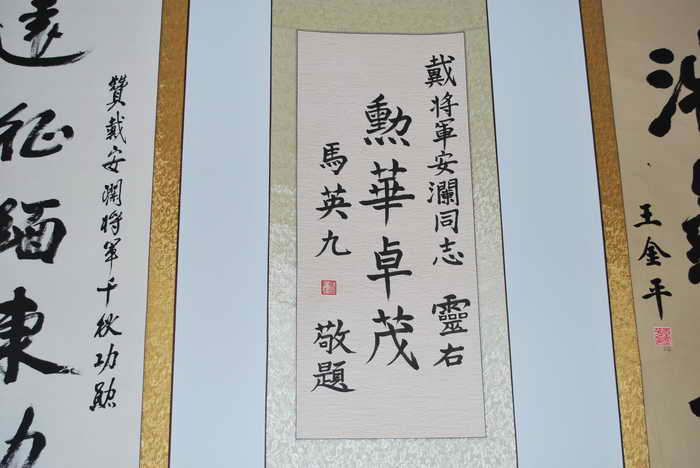 戴將軍安瀾同志 靈右
勲華卓茂
馬英九 敬題
王金平
遠征緬東
贊戴安瀾將軍千秋功勛